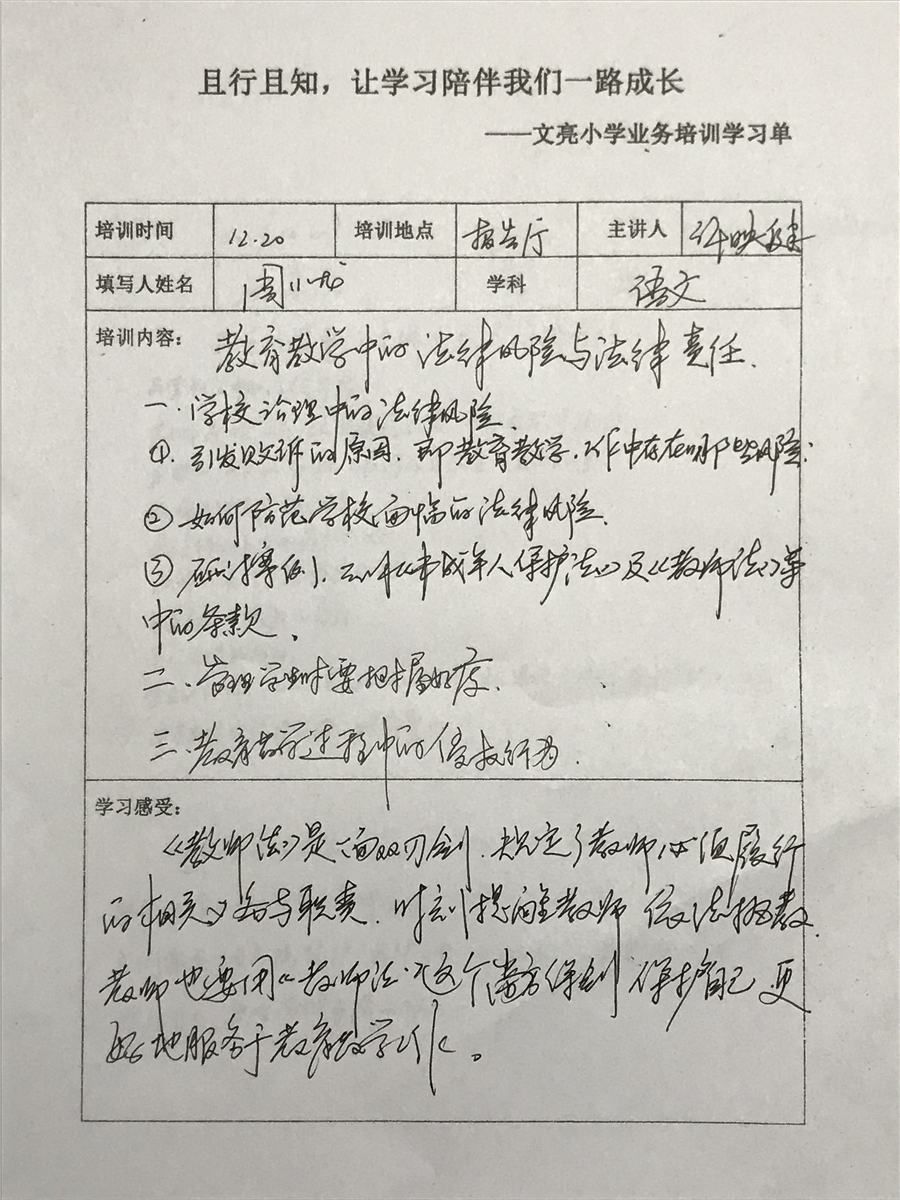 且行且知，让学习陪伴我们一路成长
——文亮小学业务培训学习单
培训时间 12.20 培训地点 报告厅 主讲人 许映
填写人姓名 周小 学科 语文
培训内容： 教育教学中的法律风险与法律责任.
一.学校治理中的法律风险.
①.引发败诉的原因.即教育教学.工作中存在哪些风险:
②如何防范学校面临的法律风险.
③ 案例.《未成年人保护法》及《教师法》等
中的条款.
二、管理学生时要把握好度.
三.教育教学过程中的侵权行为.
学习感受：
《教师法》是一面双刃剑.规定了教师必须履行
的相关义务与职责.时刻提醒教师依法执教.
教师也要用《教师法》这个尚方保剑保护自己更
好地服务于教育教学工作。